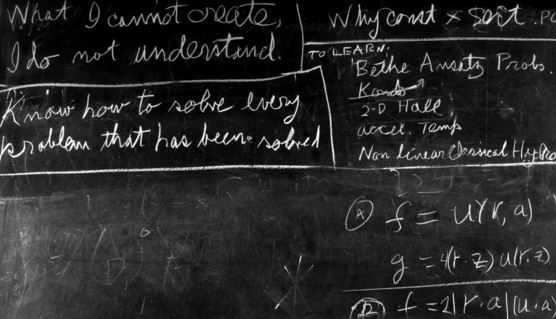 What I cannot create,
I do not understand.
Know how to solve every
problem that has been solved
Why const × sort . PO
TO LEARN:
Bethe Ansatz Probs.
Kondo
2-D Hall
accel. Temp
Non linear Classical Hydro
(A) f = u(r, a)
g = 4(r·z) u(r, z)
(B) f = 2|r·a|(u·a)